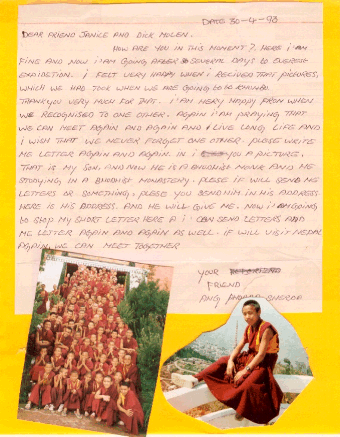 DATE 30-4-93
DEAR FRIEND JANICE AND DICK MOLEN.
HOW ARE YOU IN THIS MOMENT?, HERE I AM
FINE AND NOW I AM GOING AFTER SEVERAL DAYS TO EVEREST
EXPIDITION. I FELT VERY HAPPY WHEN I RECIVED THAT PICTURES,
WHICH WE HAD TOOK WHEN WE ARE GOING TO
THANK YOU VERY MUCH FOR THAT. I AM VERY HAPPY FROM WHEN
WE RECOGNISED TO ONE OTHER. AGAIN I AM PRAYING THAT
WE CAN MEET AGAIN AND AGAIN AND LIVE LONG LIFE AND
I WISH THAT WE NEVER FORGET ONE OTHER. PLEASE WRITE
ME LETTER AGAIN AND AGAIN. IN I YOU A PICTURE,
THAT IS MY SON, AND NOW HE IS A BHUDIST MONK AND HE
STUDYING IN A BHUDIST MONASTERY. PLEASE IF WILL SEND ME
LETTERS OR SOMETHING, PLEASE YOU SEND HIM IN HIS ADDRESS
HERE IS HIS ADDRESS. AND HE WILL GIVE ME. NOW I AM GOING
TO STOP MY SHORT LETTER HERE & I CAN SEND LETTERS AND
ME LETTER AGAIN AND AGAIN AS WELL. IF WILL VISIT NEPAL
AGAIN, WE CAN MEET TOGETHER
YOUR
FRIEND,
ANG SHERPA